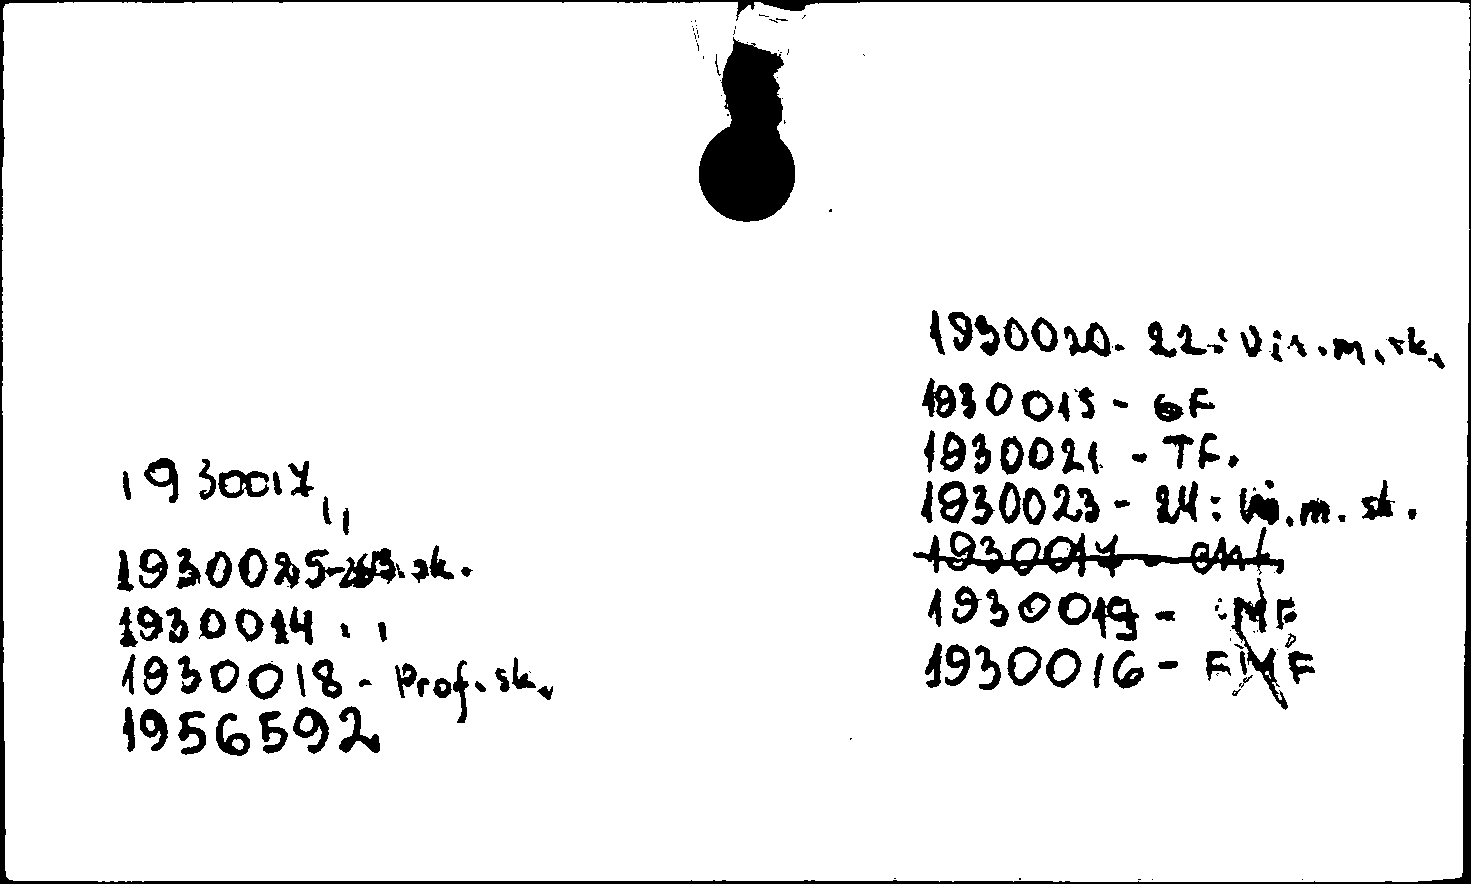 1930017,,
1930025-26B.sk.
1930014 . ,
1930018 - Prof.sk.
1956592
1930020-22: Vis.m.sk.
1930015 - GF
1930021 - TF.
1930023 - 24: Vis.m.sk.
1930017 -
1930019 - MF
1930016 - FMF